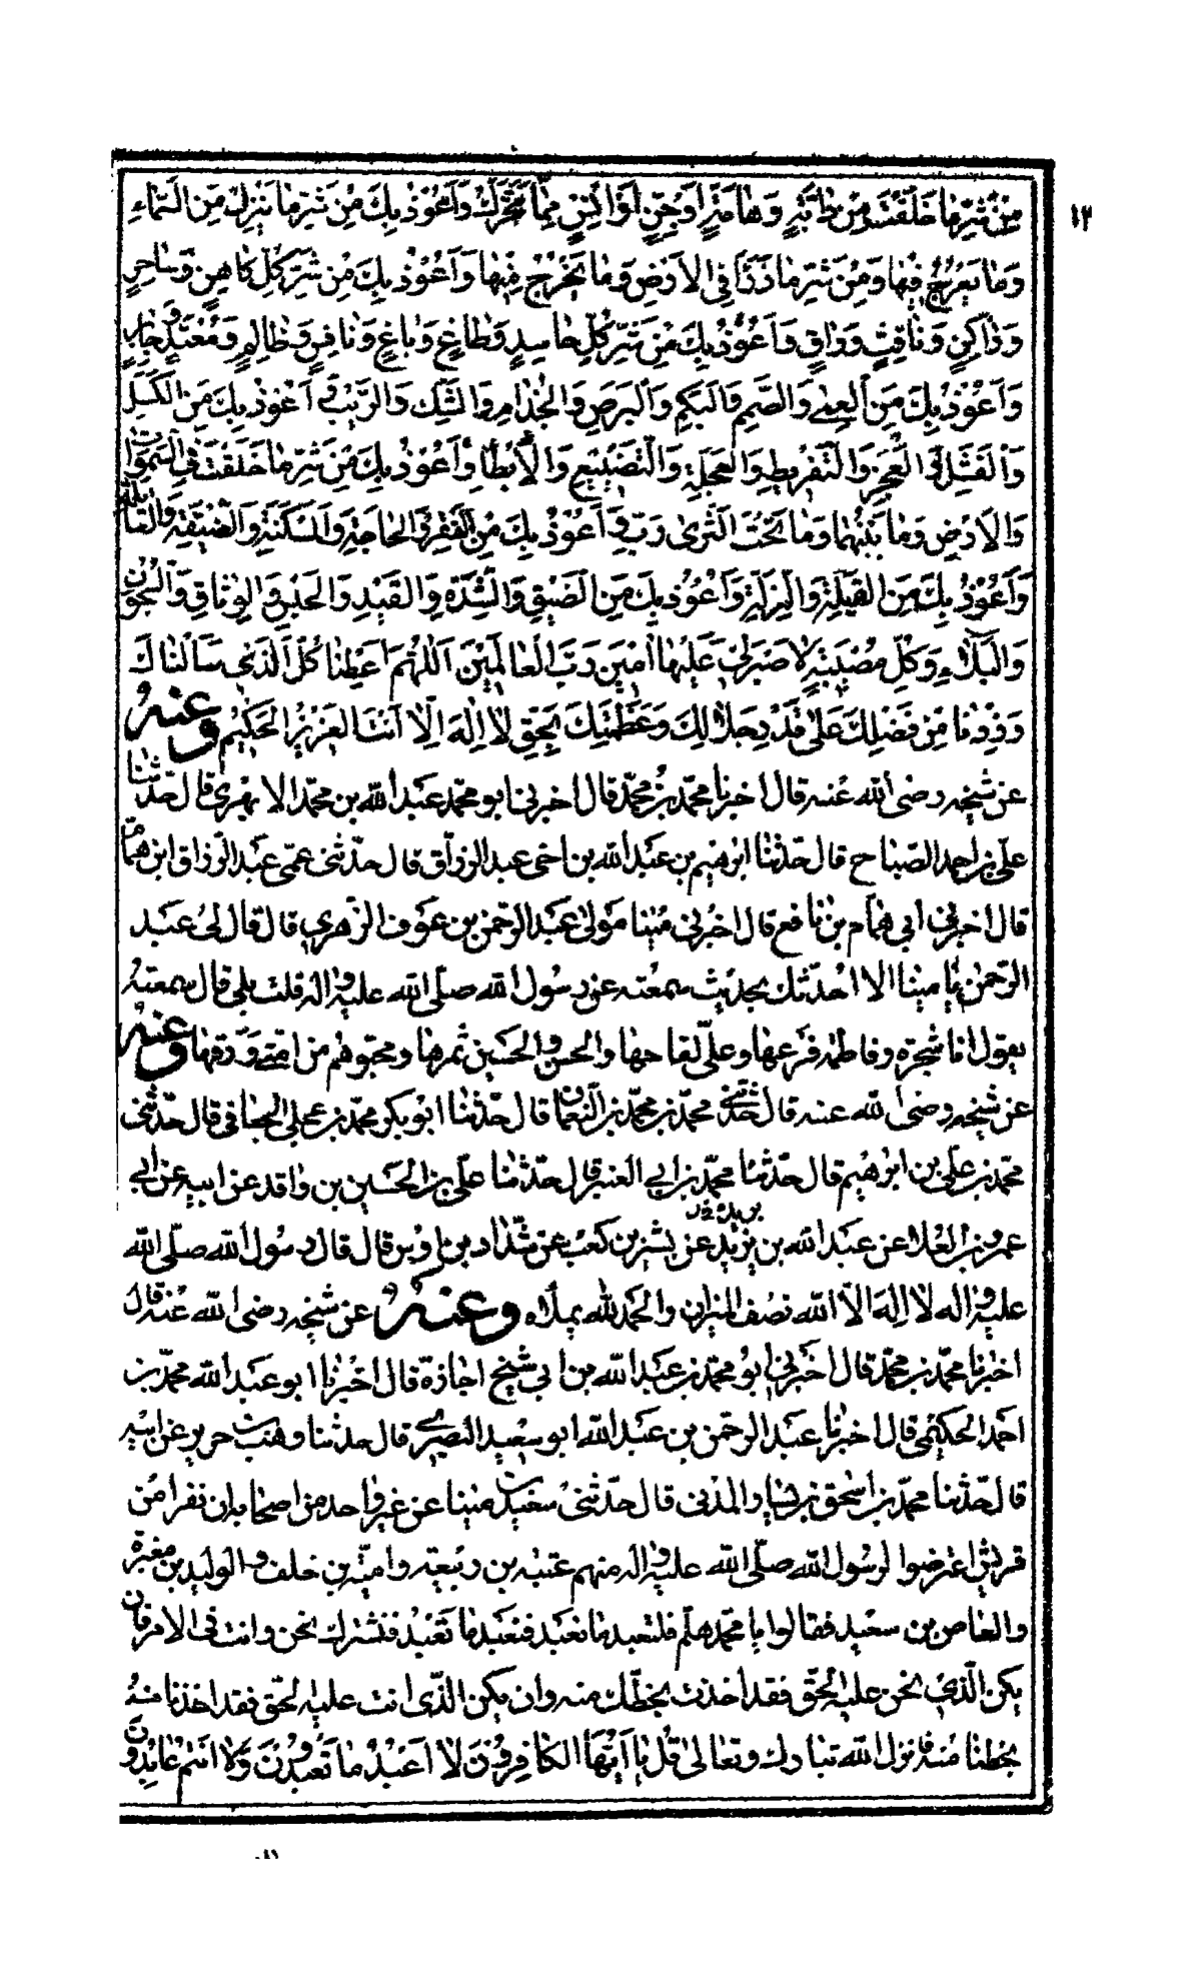 ١٢
مِنْ شَرِّ مٰا خَلَقْتَ مِنْ دٰابَّةٍ وَهٰامَّةٍ اَوْجِنٍّ اَوْاِنْسٍ مِمّٰا يَتَحَرَّكُ وَاَعُوْذُ بِكَ مِنْ شَرِّ مٰا يَنْزِلُ مِنَ السَّمٰاءِ
وَمٰا يَعْرُجُ فِيْهٰا وَمِنْ شَرِّ مٰا ذَرَأَ فِى الْاَرْضِ وَمٰا يَخْرُجُ مِنْهٰا وَاَعُوْذُ بِكَ مِنْ شَرِّ كُلِّ كٰاهِنٍ وَسٰاحِرٍ
وَزٰاكِنٍ وَنٰافِثٍ وَرٰاقٍ وَاَعُوْذُ بِكَ مِنْ شَرِّ كُلِّ حٰاسِدٍ وَطٰاغٍ وَبٰاغٍ وَنٰافِسٍ وَظٰالِمٍ وَمُعْتَدٍ وَجٰايِرٍ
وَاَعُوْذُ بِكَ مِنَ الْعَمٰى وَالصَّمَمِ وَالْبَكَمِ وَالْبَرَصِ وَالْجُذٰامِ وَالشَّكِّ وَالرَّيْبِ وَ اَعُوْذُ بِكَ مِنَ الْكَسَلِ
وَالْفَشَلِ وَ الْعَجْزِ وَالتَّفْرِيْطِ وَالْعَجَلَةِ وَالتَّضْيِيْعِ وَالْاِبْطٰاءِ وَاَعُوْذُ بِكَ مِنْ شَرِّ مٰا خَلَقْتَ فِى السَّمٰوٰاتِ
وَالْاَرْضِ وَمٰا بَيْنَهُمٰا وَمٰا تَحْتَ الثَّرٰى رَبِّ وَ اَعُوْذُ بِكَ مِنَ الْفَقْرِ وَ الْحٰاجَةِ وَالْمَسْكَنَةِ وَالضِّيْقَةِ وَالْعٰائِلَةِ
وَاَعُوْذُ بِكَ مِنَ الْقِيْلَةِ وَالذِّلَّةِ وَاَعُوْذُ بِكَ مِنَ الضِّيْقِ وَالشِّدَّةِ وَالْقَيْدِ وَالْحَبْسِ وَ الْوِثٰاقِ وَالسُّجُوْنِ
وَالْبَلٰاءِ وَكُلِّ مُصِيْبَةٍ لٰا صَبْرَ لِىْ عَلَيْهٰا اٰمِيْنَ رَبَّ الْعٰالَمِيْنَ اَللّٰهُمَّ اَعْطِنٰا كُلَّ الَّذِىْ سَاَلْنٰاكَ
وَزِدْنٰا مِنْ فَضْلِكَ عَلٰى قَدْرِ جَلٰالِكَ وَعَظَمَتِكَ بِحَقِّ لٰا اِلٰهَ اِلّٰا اَنْتَ الْعَزِيْزُ الْحَكِيْمُ وعنهُ
عن شيخه رضى الله عنه قال اخبرنا محمّد بن محمّد قال اخبرنى ابو محمّد عبد الله بن محمّد الابهرى قال حدّثنا
علىّ بن احمد الصّباح قال حدّثنا ابرهيم بن عبد الله بن اخى عبد الرزاق قال حدّثنى عمّى عبد الرزاق ابن همّام
قال اخبرنى ابى همام بن نافع قال اخبرنى مينا مولى عبد الرّحمن بن عوف الزهرى قال قال لى عبد
الرّحمن يا مينا الا احدّثك بحديث سمعته عن رسول الله صلّى الله عليه واله قلت بلى قال سمعته
يقول انا شجرة وفاطمة فرعها وعلىّ لقاحها والحسن والحسين ثمرها ومحبّوهم من امّتى ورقها وعنهُ
عن شيخه رضى الله عنه قال حدّثنى محمّد بن محمّد بن النعمان قال حدّثنا ابو بكر محمّد بن عمر الجعابى قال حدّثنى
محمّد بن علىّ بن ابرهيم قال حدّثنا محمّد بن ابى العنبر قال حدّثنا علىّ بن الحسين بن واقد عن ابيه عن ابى
عمرو بن العلا عن عبد الله بن يزيد عن بشير بن كعب عن شدّاد بن اوس قال قال رسول الله صلّى الله
عليه واله لا اِلٰهَ الاّ الله نصف الميزان والحمد لله يملأه وعنهُ عن شيخه رضى الله عنه قال
اخبرنا محمّد بن محمّد قال اخبرنى ابو محمّد بن عبد الله بن ابى شيخ اجازة قال اخبرنا ابو عبد الله محمّد بن
احمد الحكيمى قال اخبرنا عبد الرحمن بن عبد الله ابو سعيد البصرى قال حدّثنا وهب بن جرير عن ابيه
قال حدّثنا محمّد بن اسحق بن يسار المدنى قال حدّثنى سعيد بن مينا عن غير واحد من اصحابه ان نفرا من
قريش اعترضوا لرسول الله صلّى الله عليه واله منهم عتبة بن ربيعة وامية بن خلف والوليد بن مغيرة
والعاص بن سعيد فقالوا يا محمّد هلمّ فلنعبد ما تعبد فتعبد ما نعبد فنشترك نحن وانت فى الامر فان
يكن الّذى نحن عليه الحقّ فقد اخذت بحظّك منه وان يكن الذّى انت عليه الحق فقد اخذنا منهُ
بحظنا منه فانزل الله تبارك وتعالى قُلْ يٰا اَيُّهَا الْكٰافِرُوْنَ لٰا اَعْبُدُ مٰا تَعْبُدُوْنَ وَلٰا اَنْتُمْ عٰابِدُوْنَ